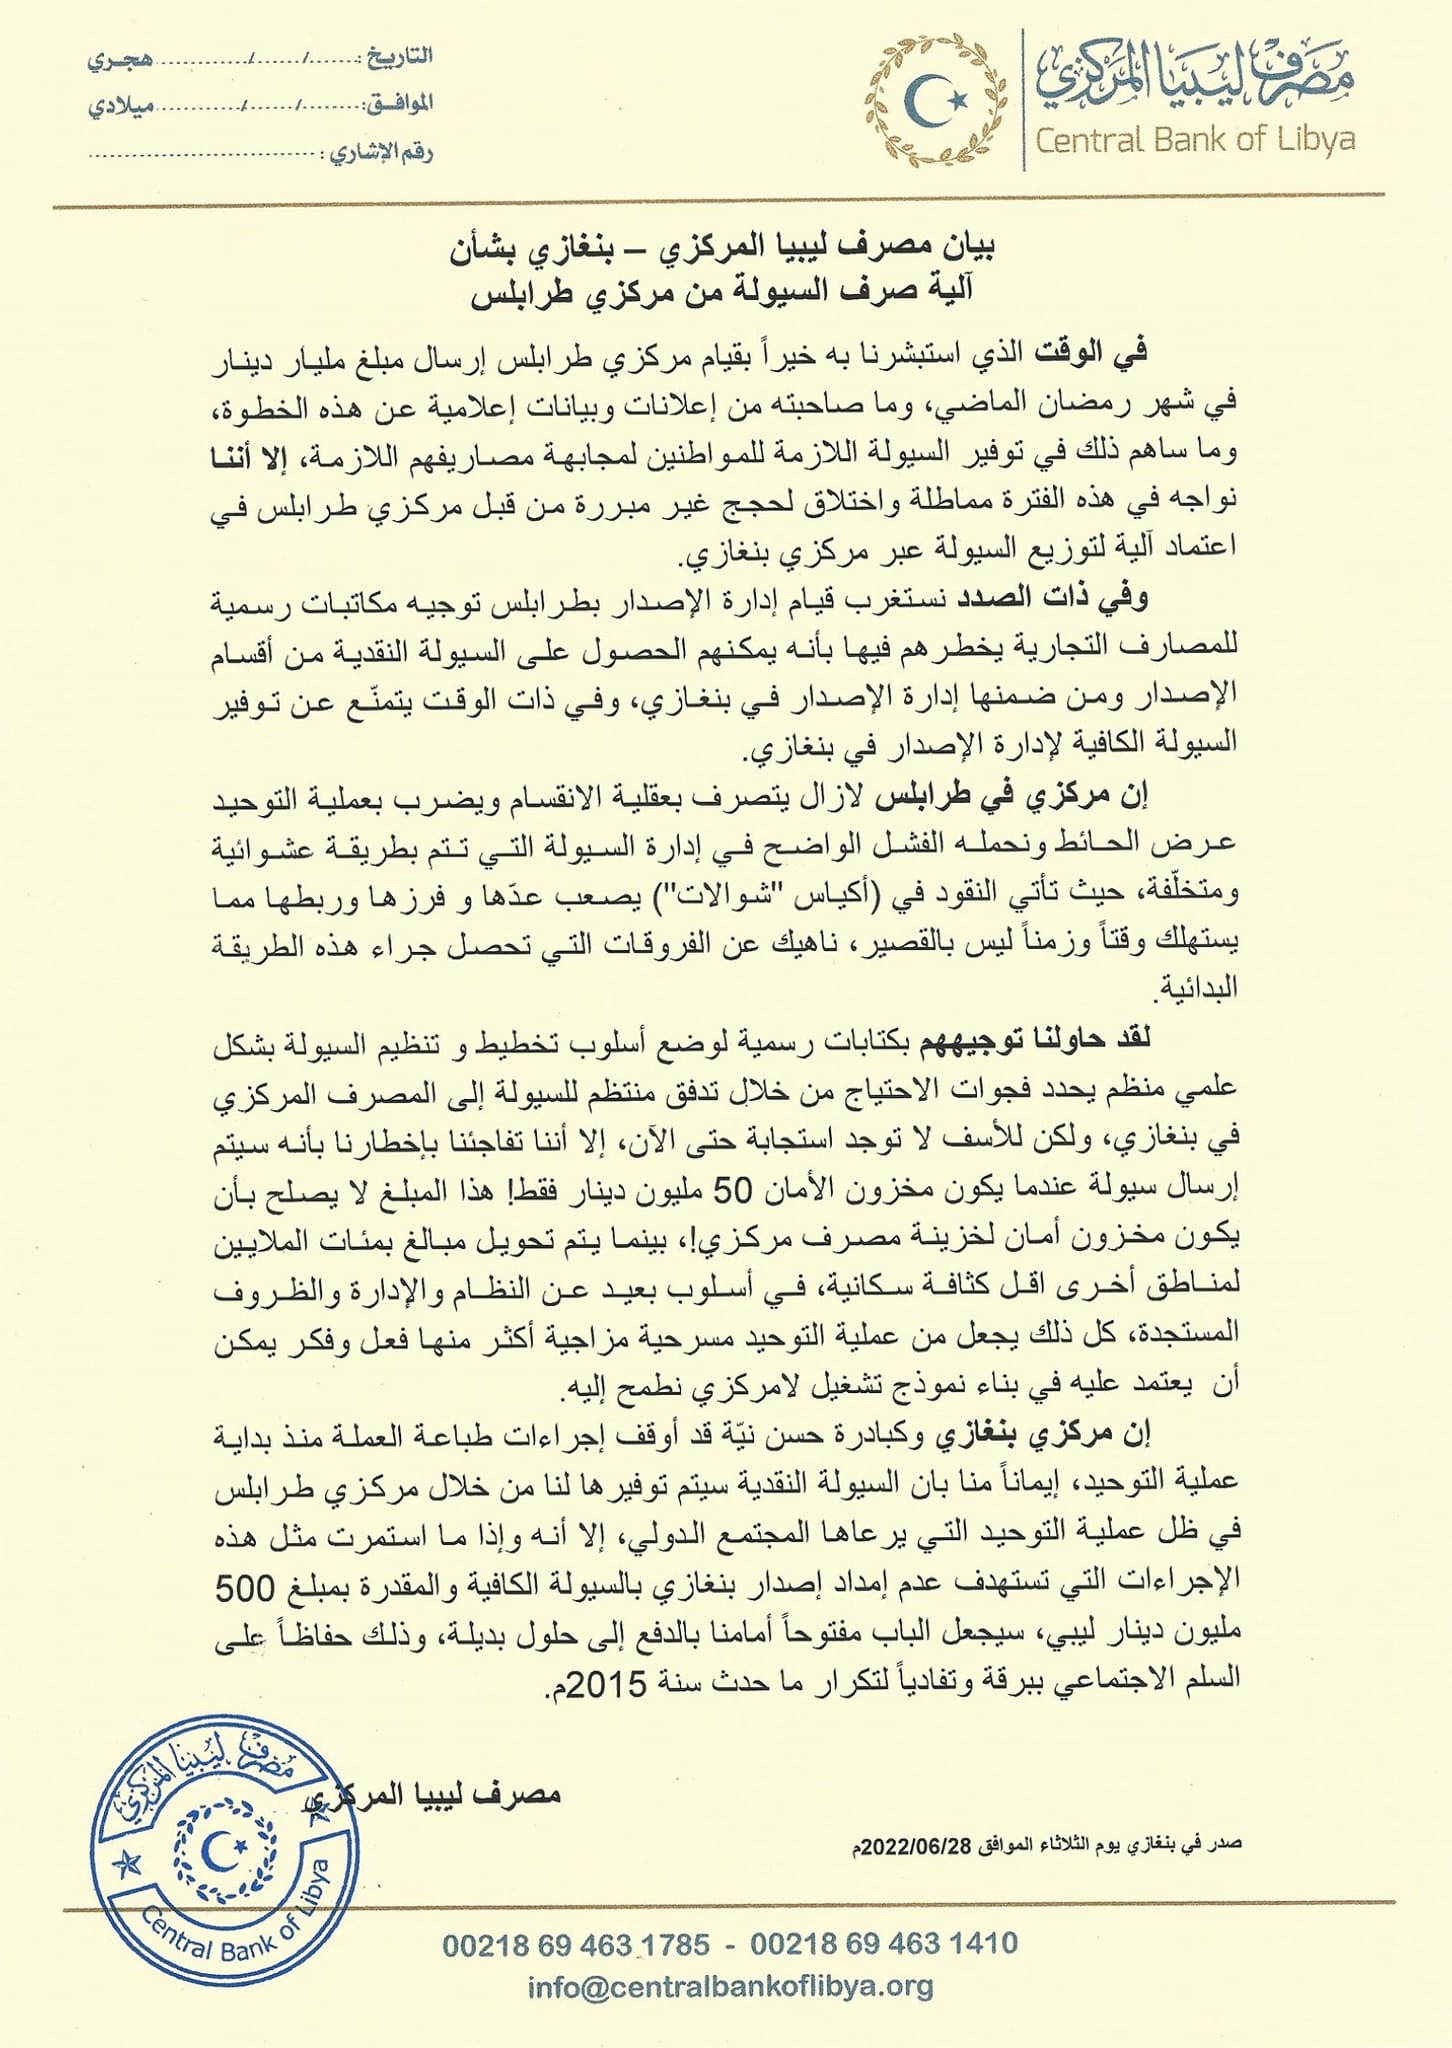 مصرف ليبيا المركزي
Central Bank of Libya
التاريخ :....../....../............ هجري
الموافق:......./....../............ ميلادي
رقم الإشاري : ................................
بيان مصرف ليبيا المركزي – بنغازي بشأن
آلية صرف السيولة من مركزي طرابلس
في الوقت الذي استبشرنا به خيراً بقيام مركزي طرابلس إرسال مبلغ مليار دينار
في شهر رمضان الماضي، وما صاحبته من إعلانات وبيانات إعلامية عن هذه الخطوة،
وما ساهم ذلك في توفير السيولة اللازمة للمواطنين لمجابهة مصاريفهم اللازمة، إلا أننا
نواجه في هذه الفترة مماطلة واختلاق لحجج غير مبررة من قبل مركزي طرابلس في
اعتماد آلية لتوزيع السيولة عبر مركزي بنغازي.
وفي ذات الصدد نستغرب قيام إدارة الإصدار بطرابلس توجيه مكاتبات رسمية
للمصارف التجارية يخطرهم فيها بأنه يمكنهم الحصول على السيولة النقدية من أقسام
الإصدار ومن ضمنها إدارة الإصدار في بنغازي، وفي ذات الوقت يتمنّع عن توفير
السيولة الكافية لإدارة الإصدار في بنغازي.
إن مركزي في طرابلس لازال يتصرف بعقلية الانقسام ويضرب بعملية التوحيد
عرض الحائط ونحمله الفشل الواضح في إدارة السيولة التي تتم بطريقة عشوائية
ومتخلّفة، حيث تأتي النقود في (أكياس "شوالات") يصعب عدّها و فرزها وربطها مما
يستهلك وقتاً وزمناً ليس بالقصير، ناهيك عن الفروقات التي تحصل جراء هذه الطريقة
البدائية.
لقد حاولنا توجيههم بكتابات رسمية لوضع أسلوب تخطيط و تنظيم السيولة بشكل
علمي منظم يحدد فجوات الاحتياج من خلال تدفق منتظم للسيولة إلى المصرف المركزي
في بنغازي، ولكن للأسف لا توجد استجابة حتى الآن، إلا أننا تفاجئنا بإخطارنا بأنه سيتم
إرسال سيولة عندما يكون مخزون الأمان 50 مليون دينار فقط! هذا المبلغ لا يصلح بأن
يكون مخزون أمان لخزينة مصرف مركزي!، بينما يتم تحويل مبالغ بمئات الملايين
لمناطق أخرى اقل كثافة سكانية، في أسلوب بعيد عن النظام والإدارة والظروف
المستجدة، كل ذلك يجعل من عملية التوحيد مسرحية مزاجية أكثر منها فعل وفكر يمكن
أن يعتمد عليه في بناء نموذج تشغيل لامركزي نطمح إليه.
إن مركزي بنغازي وكبادرة حسن نيّة قد أوقف إجراءات طباعة العملة منذ بداية
عملية التوحيد، إيماناً منا بان السيولة النقدية سيتم توفيرها لنا من خلال مركزي طرابلس
في ظل عملية التوحيد التي يرعاها المجتمع الدولي، إلا أنه وإذا ما استمرت مثل هذه
الإجراءات التي تستهدف عدم إمداد إصدار بنغازي بالسيولة الكافية والمقدرة بمبلغ 500
مليون دينار ليبي، سيجعل الباب مفتوحاً أمامنا بالدفع إلى حلول بديلة، وذلك حفاظاً على
السلم الاجتماعي ببرقة وتفادياً لتكرار ما حدث سنة 2015م.
مصرف ليبيا المركزي
مصرف ليبيا المركزي
Central Bank of Libya
صدر في بنغازي يوم الثلاثاء الموافق 2022/06/28م
00218 69 463 1785 - 00218 69 463 1410
info@centralbankoflibya.org